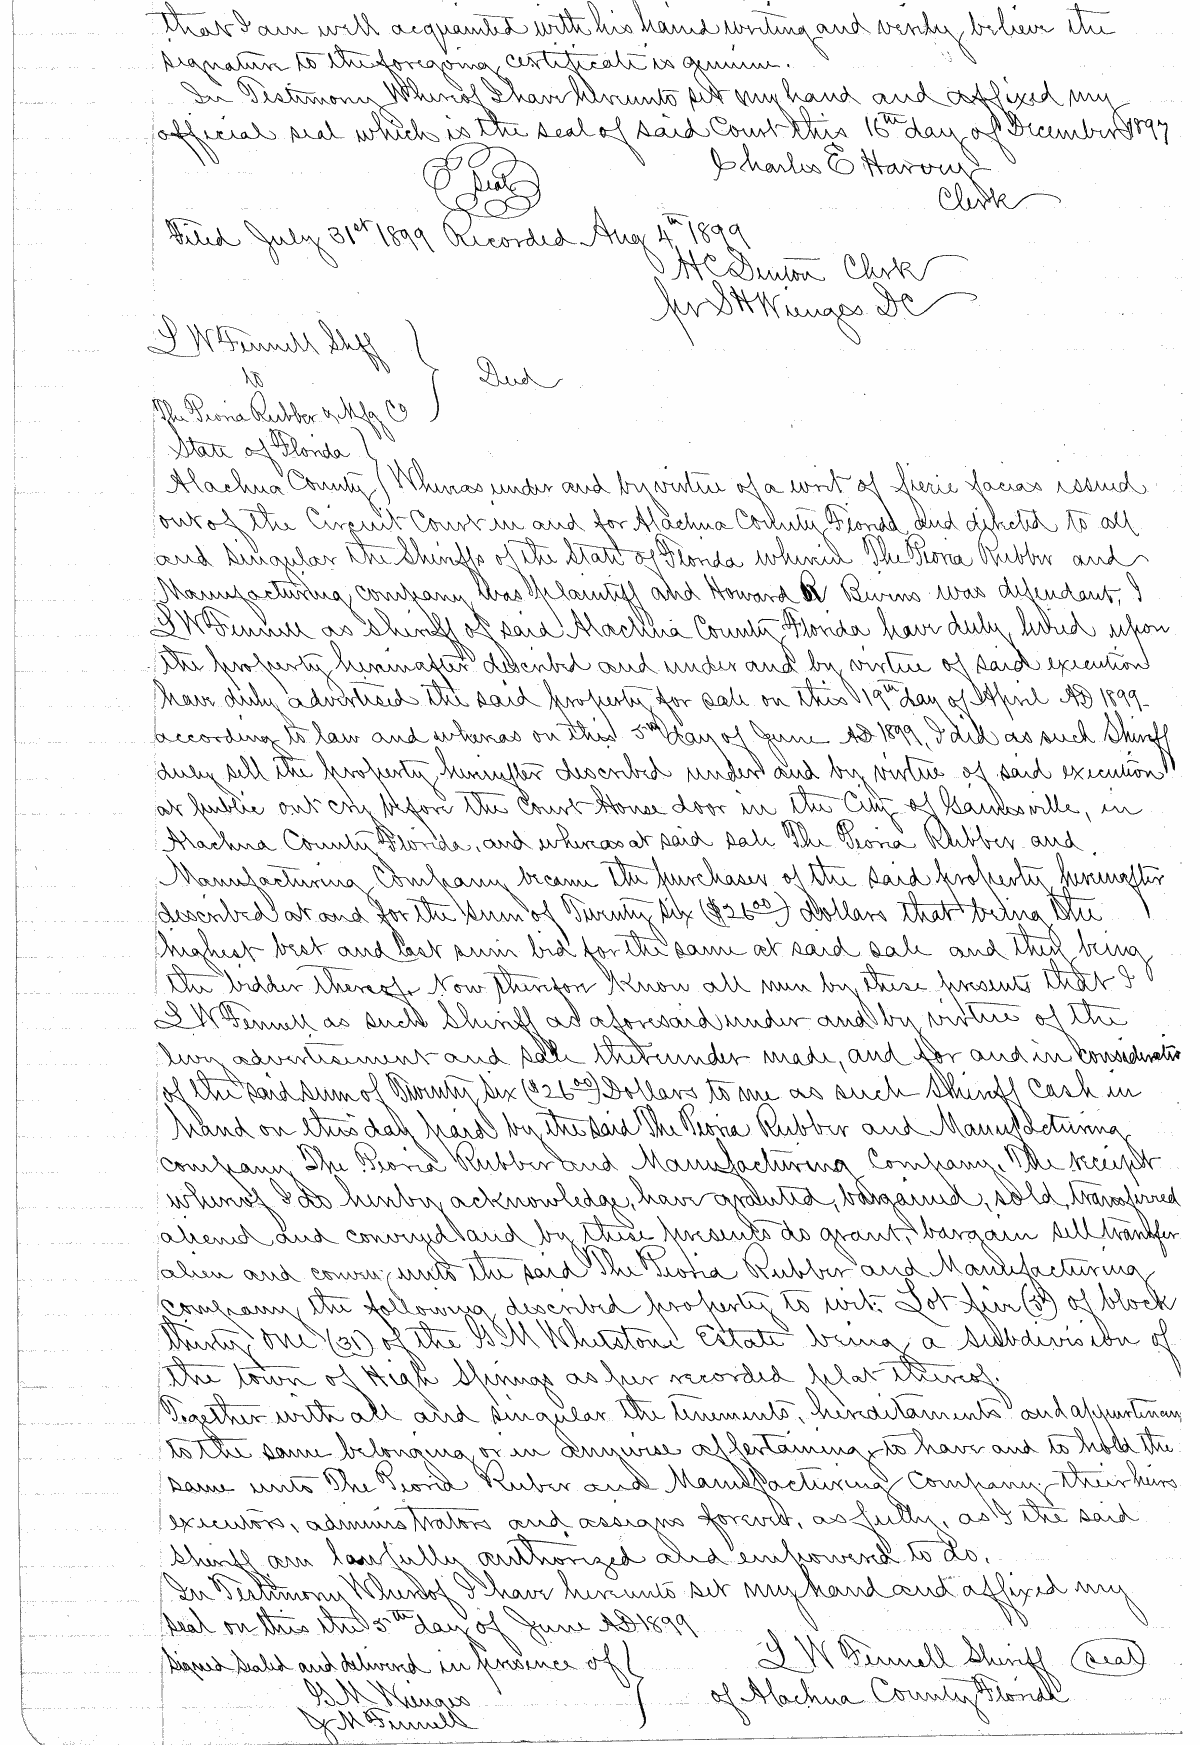 that I am well acquainted with his hand writing and verily believe the
signature to the foregoing certificate is genuine.
In Testimony Whereof I have hereunto set my hand and affixed my
official seal which is the seal of said Court this 16th day of December 1897
Seal
Charles E Harvey
Clerk
Filed July 31st 1899 Recorded Aug 4th 1899
H C Denton Clerk
per S H Wienges DC
L W Fennell Shff
to
Deed
The Peoria Rubber & Mfg Co
State of Florida
Alachua County Whereas under and by virtue of a writ of fierie facias issued
out of the Circuit Court in and for Alachua County Florida and directed to all
and singular the Sheriffs of the State of Florida wherein The Peoria Rubber and
Manufacturing company was plaintiff and Howard R Bivins was defendant, I
L W Fennell as Sheriff of said Alachua County Florida have duly levied upon
the property hereinafter described and under and by virtue of said execution
have duly advertised the said property for sale on this 19th day of April AD 1899
according to law and whereas on this 5th day of June AD 1899, I did as such Sheriff
duly sell the property hereinafter described under and by virtue of said execution
at public out cry before the Court House door in the City of Gainesville, in
Alachua County Florida, and whereas at said sale The Peoria Rubber and
Manufacturing Company became the purchaser of the said property hereinafter
described at and for the sum of Twenty six ($26.00) dollars that being the
highest best and last sum bid for the same at said sale and they being
the bidder thereof. Now therefore Know all men by these presents that I
L W Fennell as such Sheriff as aforesaid under and by virtue of the
levy advertisement and sale thereunder made, and for and in consideratio
of the said sum of Twenty six ($26.00) Dollars to me as such Sheriff cash in
hand on this day paid by the said The Peoria Rubber and Manufacturing
company The Peoria Rubber and Manufacturing Company, The receipt
whereof I do hereby acknowledge, have granted, bargained, sold, transferred
aliened and conveyed and by these presents do grant, bargain sell transfer
alien and convey unto the said The Peoria Rubber and Manufacturing
company the following described property to wit: Lot five (5) of block
thirty one (31) of the G M Whetstone Estate being a subdivision of
the town of High Springs as per recorded plat thereof.
Together with all and singular the tenements, hereditaments and appurtenan
to the same belonging or in anywise appertaining, to have and to hold the
same unto The Peoria Ruber and Manufacturing Company their heirs
executors, administrators and assigns forever, as fully, as I the said
Sheriff am lawfully authorized and empowered to do.
In Testimony Whereof I have hereunto set my hand and affixed my
seal on this the 5th day of June AD 1899
signed sealed and delivered in presence of
L W Fennell Sheriff seal
G M Wienges
of Alachua County Florida
J M Fennell